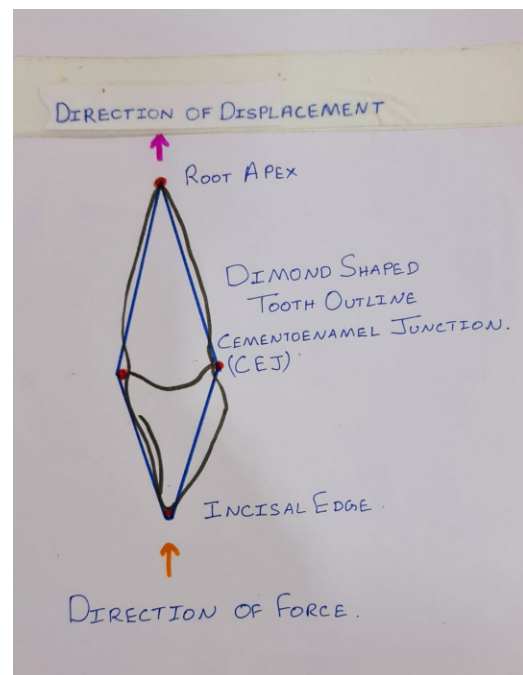 DIRECTION OF DISPLACEMENT
ROOT APEX
DIMOND SHAPED
TOOTH OUTLINE
CEMENTOENAMEL JUNCTION.
(CEJ)
INCISAL EDGE.
DIRECTION OF FORCE.